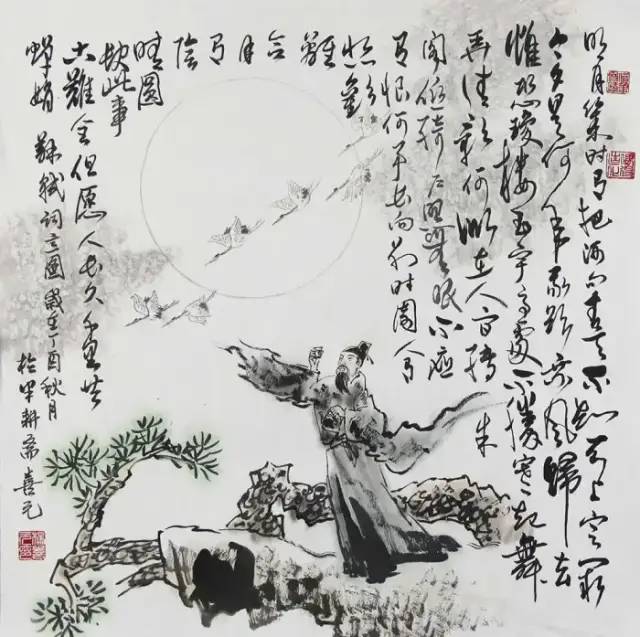 明月幾时有把酒问青天不知天上宫阙
今夕是何年我欲乘风归去
惟恐瓊楼玉宇高處不勝寒起舞
弄清影何似在人间转朱
阁低绮户照无眠不应
有恨何事长向别时圆人有
悲歡
離
合
月
有
陰
晴圆
缺此事
古難全但愿人长久千里共
婵娟 蘇軾词意图 岁在丁酉秋月
於半耕斋 喜元